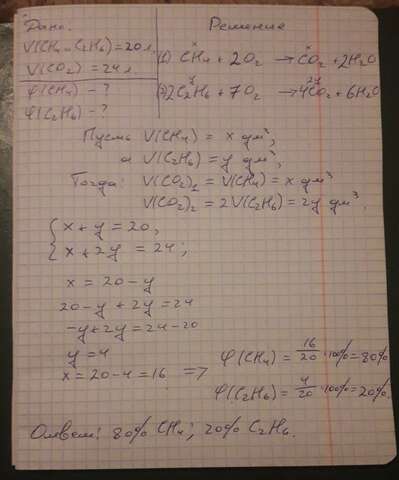 Дано:
V(CH₄ + C₂H₆) = 20 л.
V(CO₂) = 24 л.
φ(CH₄) - ?
φ(C₂H₆) - ?
Решение
x x
(1) CH₄ + 2O₂ → CO₂ + 2H₂O
y 2y
(2) 2C₂H₆ + 7O₂ → 4CO₂ + 6H₂O
Пусть V(CH₄) = x дм³,
а V(C₂H₆) = y дм³,
Тогда: V(CO₂)₁ = V(CH₄) = x дм³
V(CO₂)₂ = 2V(C₂H₆) = 2y дм³.
{ x + y = 20,
x + 2y = 24;
x = 20 - y
20 - y + 2y = 24
-y + 2y = 24 - 20
y = 4
x = 20 - 4 = 16 =>
φ(CH₄) = 16/20 · 100% = 80%
φ(C₂H₆) = 4/20 · 100% = 20%.
Ответ: 80% CH₄; 20% C₂H₆.